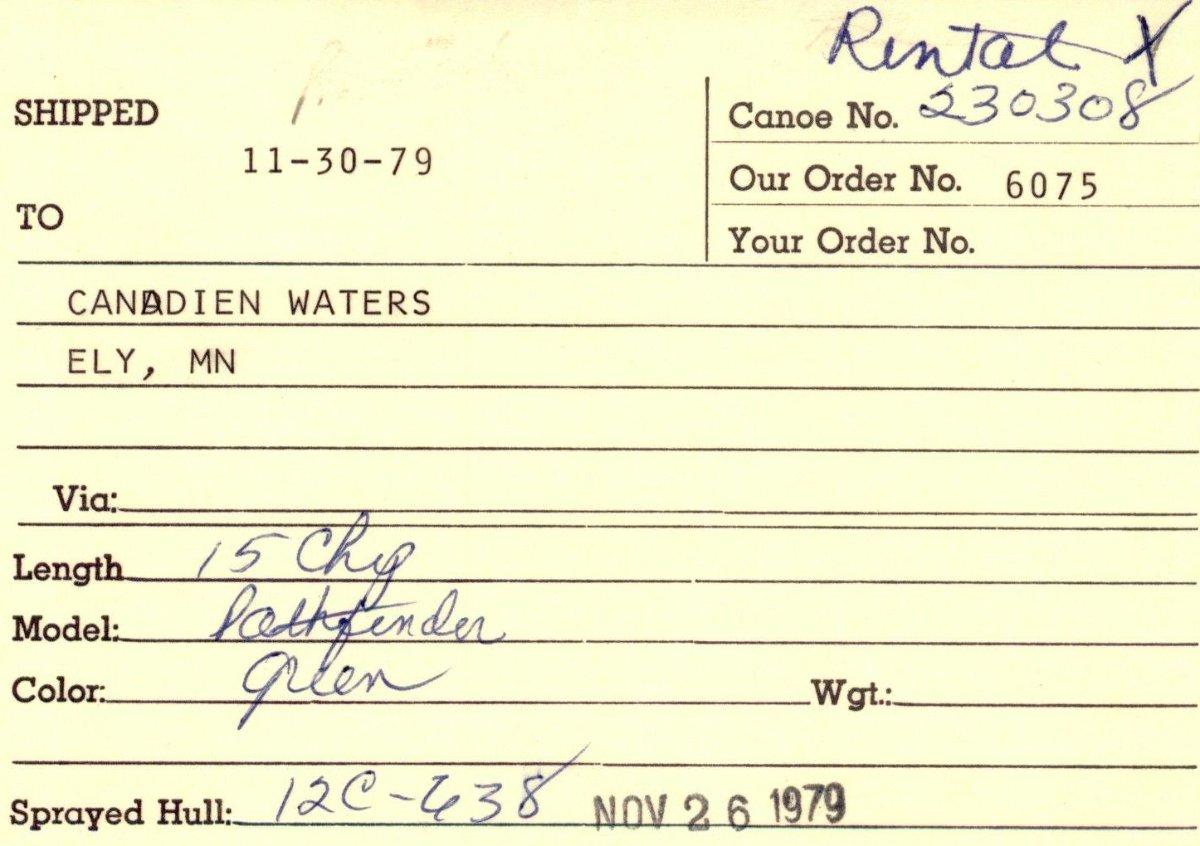 Rental X
SHIPPED
11-30-79
TO
Canoe No. 230308
Our Order No. 6075
Your Order No.
CANADIEN WATERS
ELY, MN
Via:
Length 15 Chp
Model: Pathfinder
Color: green
Wgt.:
Sprayed Hull: 12C-638 NOV 26 1979